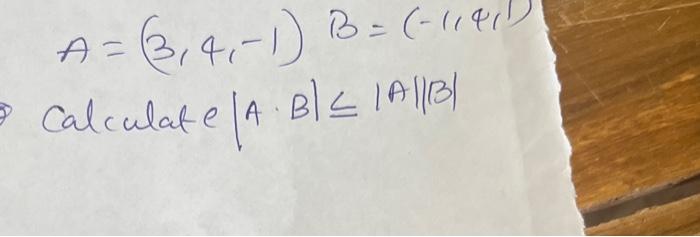 A = (3, 4, -1) B = (-1, 4, 1)
Calculate |A · B| ≤ |A||B|